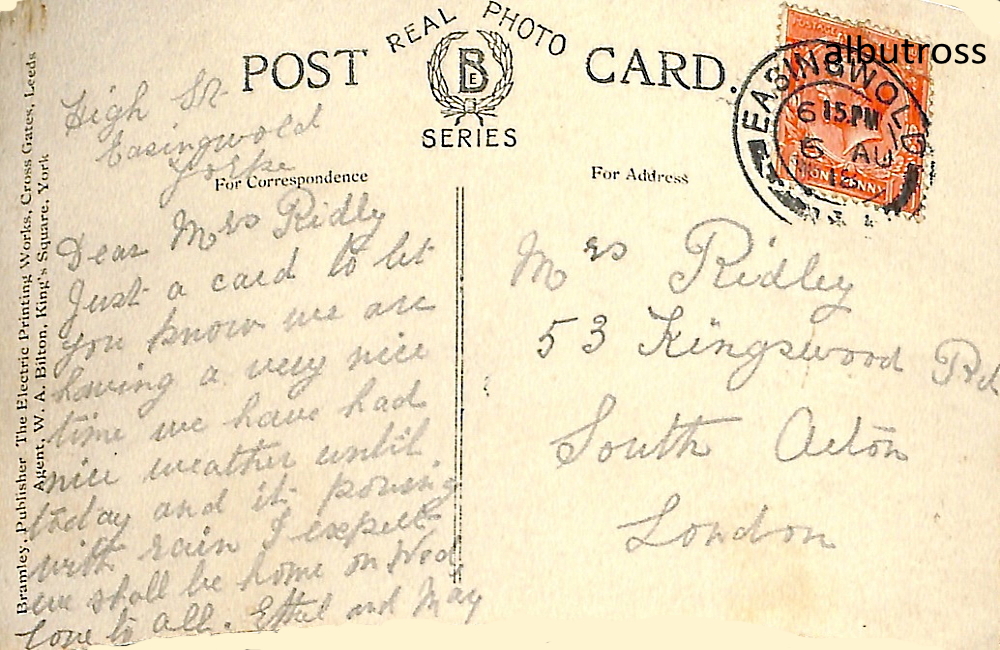 REAL PHOTO
POST CARD.
B
E
SERIES
albutross
EASINGWOLD
6 15PM
6 AU
ONE PENNY
High St
Easingwold
Yorks
For Correspondence
For Address
Dear Mrs Ridly
Just a card to let
you know we are
having a very nice
time we have had
nice weather until
today and it pouring
with rain I expect
we shall be home on Wed
Love to all. Ethel and May
Mrs Ridley
53 Kingswood Rd
South Acton
London
Bramley, Publisher The Electric Printing Works, Cross Gates, Leeds
Agent, W. A. Bilton, King's Square, York